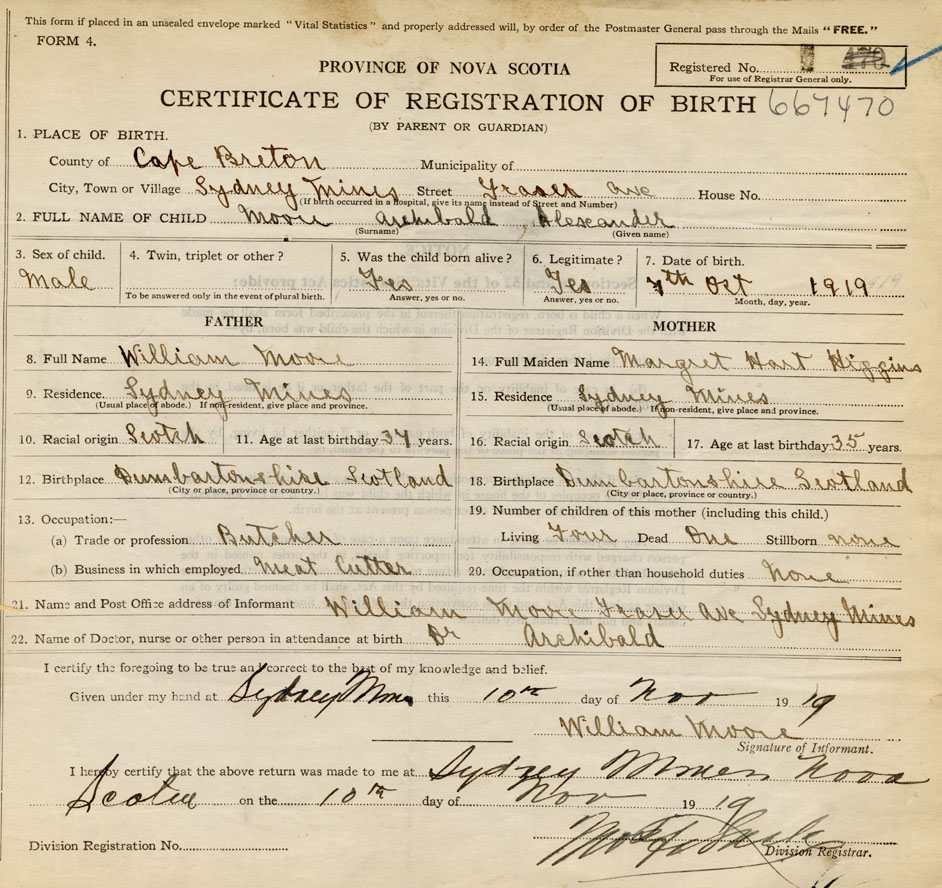 This form if placed in an unsealed envelope marked "Vital Statistics" and properly addressed will, by order of the Postmaster General pass through the Mails "FREE."
FORM 4.
Registered No.
For use of Registrar General only.
PROVINCE OF NOVA SCOTIA
CERTIFICATE OF REGISTRATION OF BIRTH 667470
(BY PARENT OR GUARDIAN)
1. PLACE OF BIRTH.
County of Cape Breton Municipality of
City, Town or Village Sydney Mines Street Fraser Ave House No.
(If birth occurred in a hospital, give its name instead of Street and Number)
2. FULL NAME OF CHILD Moore Archibald Alexander
(Surname) (Given name)
3. Sex of child. 4. Twin, triplet or other? 5. Was the child born alive? 6. Legitimate? 7. Date of birth.
Male Yes Yes 7th Oct 1919
To be answered only in the event of plural birth. Answer, yes or no. Answer, yes or no. Month, day, year.
FATHER MOTHER
8. Full Name William Moore 14. Full Maiden Name Margret Hart Higgins
9. Residence Sydney Mines 15. Residence Sydney Mines
(Usual place of abode.) If non-resident, give place and province. (Usual place of abode.) If non-resident, give place and province.
10. Racial origin Scotch 11. Age at last birthday 34 years. 16. Racial origin Scotch 17. Age at last birthday 35 years.
12. Birthplace Dumbartonshire Scotland 18. Birthplace Dumbartonshire Scotland
(City or place, province or country.) (City or place, province or country.)
13. Occupation:— 19. Number of children of this mother (including this child.)
(a) Trade or profession Butcher Living Four Dead One Stillborn none
(b) Business in which employed Meat Cutter 20. Occupation, if other than household duties None
21. Name and Post Office address of Informant William Moore Fraser Ave Sydney Mines
22. Name of Doctor, nurse or other person in attendance at birth Dr Archibald
I certify the foregoing to be true and correct to the best of my knowledge and belief.
Given under my hand at Sydney Mines this 10th day of Nov 19 19
William Moore
Signature of Informant.
I hereby certify that the above return was made to me at Sydney Mines Nova
Scotia on the 10th day of Nov 19 19
Division Registration No. Division Registrar.